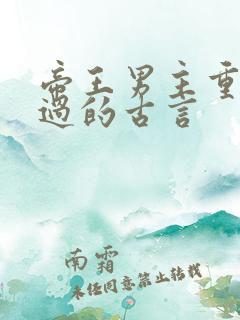 帝王男主重
过的古言
南霜
未经同意禁止转载